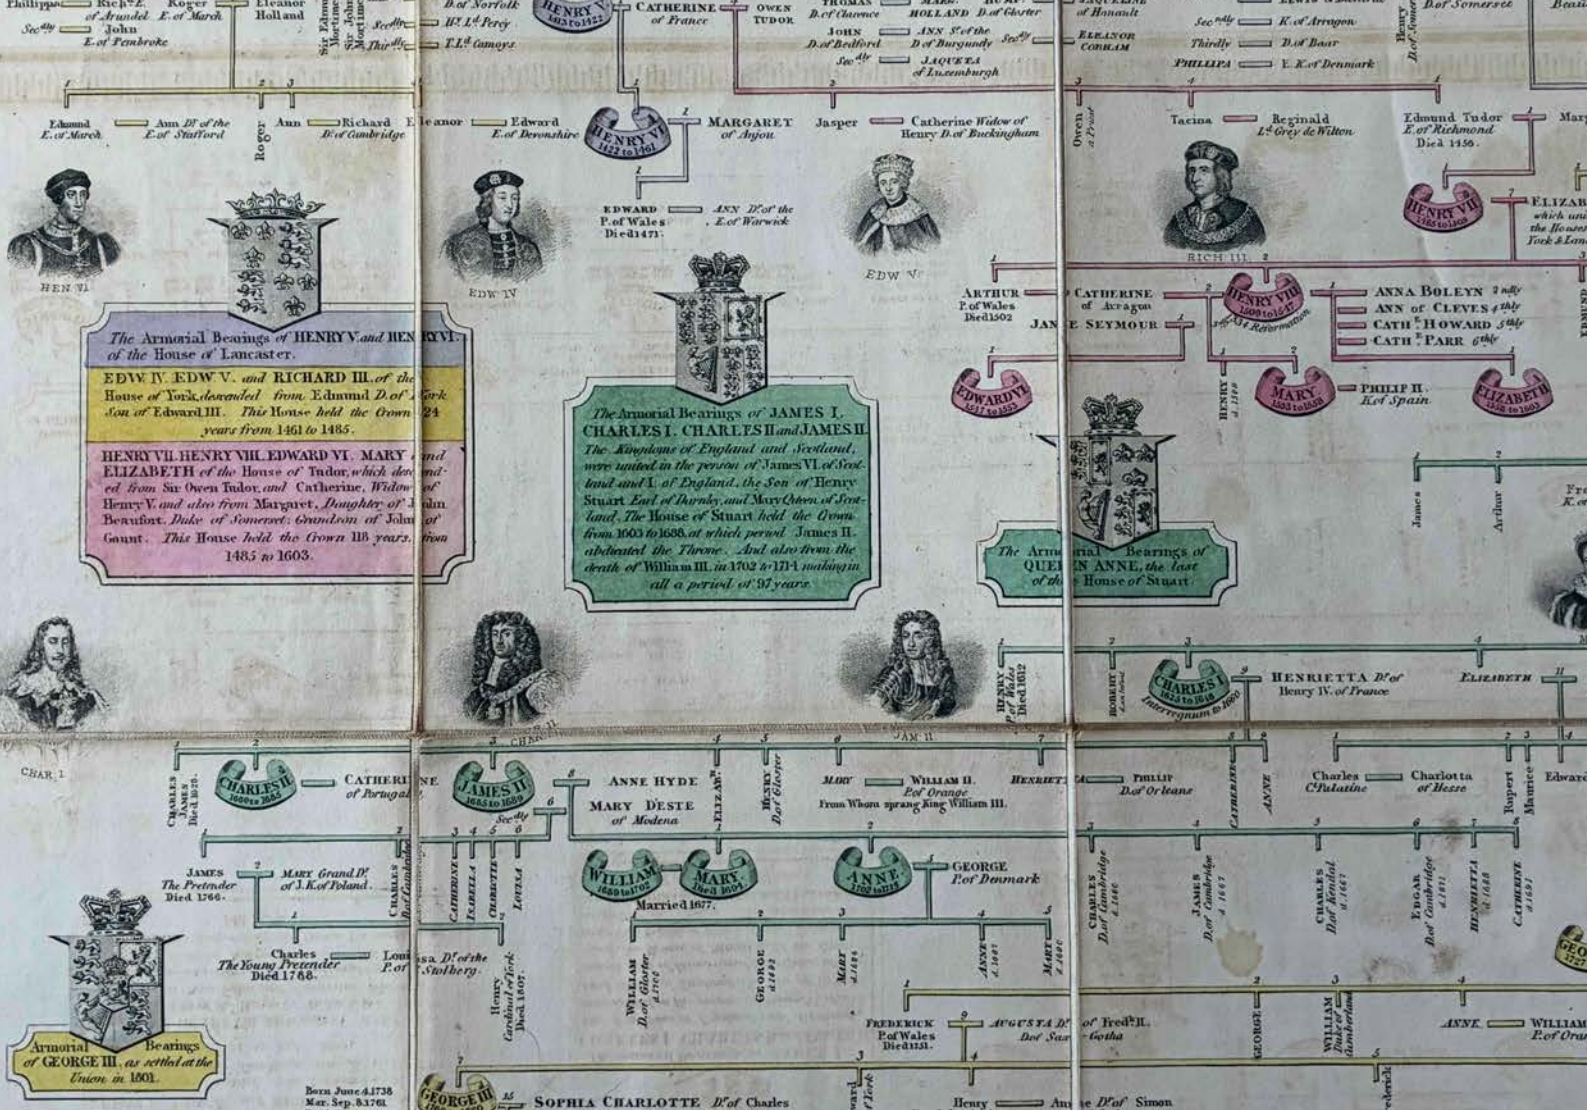 Phillippa Rich.d E. Roger Eleanor
of Arundel E. of March Holland
Sec.dly John
E. of Pembroke
D. of Norfolk
Sec.dly H.y L.d Percy
Thir.dly T. L.d Camoys
HENRY V
1413 to 1422
CATHERINE
of France
OWEN
TUDOR
THOMAS
D. of Clarence HOLLAND D. of Gloster
of Hanault
JOHN ANN S.r of the
D. of Bedford D. of Burgundy Sec.dly ELEANOR
COBHAM
Sec.dly JAQUETA
of Luxemburgh
Sec.ndly K. of Arragon
Thirdly D. of Baar
PHILLIPA E. K. of Denmark
D. of Somerset
1 2 3
Edmund Ann D.r of the
E. of March E. of Stafford
Roger
Ann Richard
D. of Cambridge
Eleanor Edward
E. of Devonshire
HENRY VI
1422 to 1461
MARGARET
of Anjou
Jasper Catherine Widow of
Henry D. of Buckingham
Owen
a Priest
Tacina Reginald
L.d Grey de Wilton
Edmund Tudor
E. of Richmond
Died 1456.
EDWARD ANN D.r of the
P. of Wales E. of Warwick
Died 1471.
HENRY VII
1485 to 1509
ELIZAB
which uni
the Houses
York & Lan
HEN VI
EDW IV
EDW V
RICH III.
ARTHUR
P. of Wales
Died 1502
CATHERINE
of Arragon
JANE SEYMOUR
HENRY VIII
1509 to 1547
1534 Reformation
ANNA BOLEYN 2ndly
ANN of CLEVES 4thly
CATH.E HOWARD 5thly
CATH.E PARR 6thly
EDMUND
EDWARD VI
1547 to 1553
HENRY
MARY
1553 to 1558
PHILIP II.
K. of Spain
ELIZABETH
1558 to 1603
The Armorial Bearings of HENRY V. and HENRY VI.
of the House of Lancaster.
EDW. IV. EDW V. and RICHARD III. of the
House of York, descended from Edmund D. of York
Son of Edward III. This House held the Crown 24
years from 1461 to 1485.
HENRY VII. HENRY VIII. EDWARD VI. MARY and
ELIZABETH of the House of Tudor, which descend-
ed from Sir Owen Tudor, and Catherine, Widow of
Henry V. and also from Margaret, Daughter of John
Beaufort, Duke of Somerset; Grandson of John of
Gaunt. This House held the Crown 118 years, from
1485 to 1603.
The Armorial Bearings of JAMES I.
CHARLES I. CHARLES II and JAMES II.
The Kingdoms of England and Scotland,
were united in the person of James VI. of Scot-
land and I. of England, the Son of Henry
Stuart Earl of Darnley, and Mary Queen of Scot-
land. The House of Stuart held the Crown
from 1603 to 1688, at which period James II.
abdicated the Throne. And also from the
death of William III. in 1702 to 1714 making in
all a period of 97 years.
The Armorial Bearings of
QUEEN ANNE, the last
of the House of Stuart.
James
Arthur
HENRY
P. of Wales
Died 1612
ROBERT
CHARLES I
1625 to 1648
Interregnum to 1660
HENRIETTA D.r of
Henry IV. of France
ELIZABETH
CHAR I.
CHAR II
JAM II
CHARLES
JAMES
CHARLES II
1660 to 1685
CATHERINE
of Portugal
JAMES II
1685 to 1689
Sec.dly
ANNE HYDE
MARY D'ESTE
of Modena
ELIZAB.H
HENRY
D. of Gloster
MARY WILLIAM II.
P. of Orange
From Whom sprang King William III.
HENRIETTA PHILLIP
D. of Orleans
CATHERINE
ANNE
Charles Charlotta
C. Palatine of Hesse
Rupert
Maurice
Edward
JAMES
The Pretender
Died 1766.
MARY Grand D.r
of J. K. of Poland.
CHARLES
D. of Cambridge
CATHERINE
ISABELLA
CHARLOTTE
LOUISA
WILLIAM
1689 to 1702
MARY
Died 1694.
Married 1677.
ANNE
1702 to 1714
GEORGE
P. of Denmark
CHARLES
D. of Cambridge
JAMES
D. of Cambridge
d. 1667
CHARLES
D. of Kendal
d. 1667
EDGAR
D. of Cambridge
d. 1671
HENRIETTA
CATHERINE
Charles Louisa D.r of the
The Young Pretender P. of Stolberg.
Died 1788.
Henry
Cardinal of York
Died 1807.
WILLIAM
D. of Gloster
d. 1700
GEORGE
MARY
ANNE
MARY
GEO
1727
Armorial Bearings
of GEORGE III. as settled at the
Union in 1801.
FREDERICK
P. of Wales
Died 1751.
AUGUSTA D.r of Fred.k II.
D. of Sax-Gotha
GEORGE
WILLIAM
Duke of
Cumberland
ANNE WILLIAM
P. of Oran
Born June 4. 1738
Mar. Sep. 8. 1761
GEORGE III
SOPHIA CHARLOTTE D.r of Charles
ward
of York
Henry Anne D.r of Simon
ederick